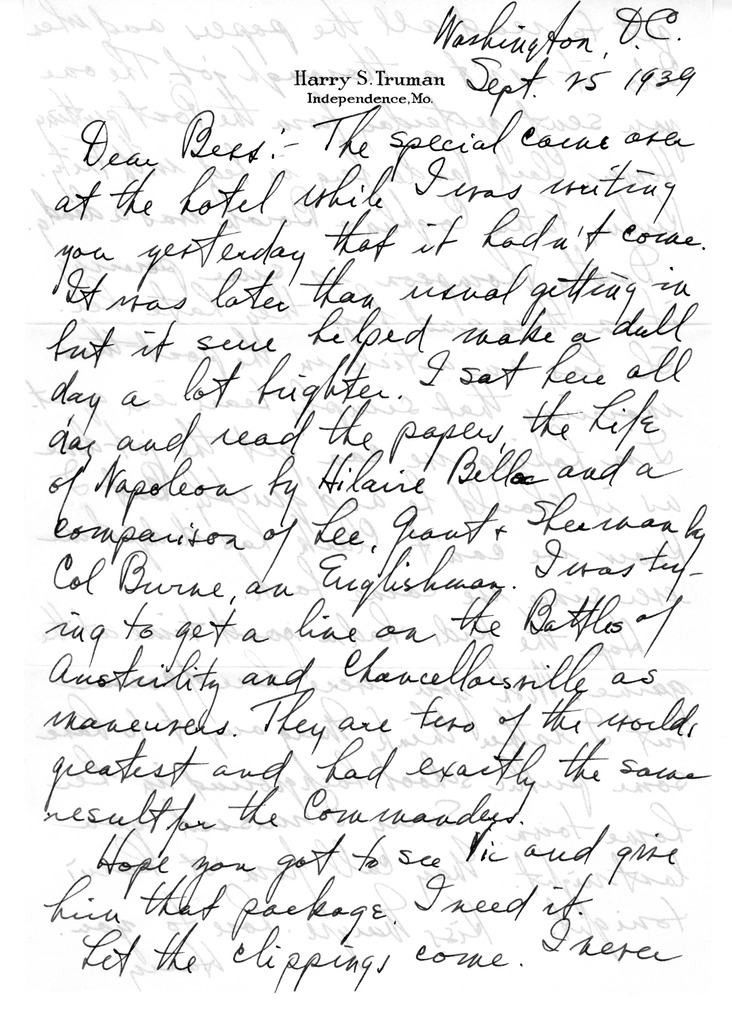 Washington, D.C.
Harry S. Truman
Independence, Mo.
Sept. 25 1939
Dear Bess:- The special came over
at the hotel while I was writing
you yesterday that it hadn't come.
It was later than usual getting in
but it sure helped make a dull
day a lot brighter. I sat here all
day and read the papers, the Life
of Napoleon by Hilaire Belloc and a
comparison of Lee, Grant & Sherman by
Col Burne, an Englishman. I was try-
ing to get a line on the Battles of
Austrility and Chancellorsville as
maneuvers. They are two of the worlds
greatest and had exactly the same
result for the Commanders.
Hope you got to see Vic and give
him that package. I need it.
Let the clippings come. I never